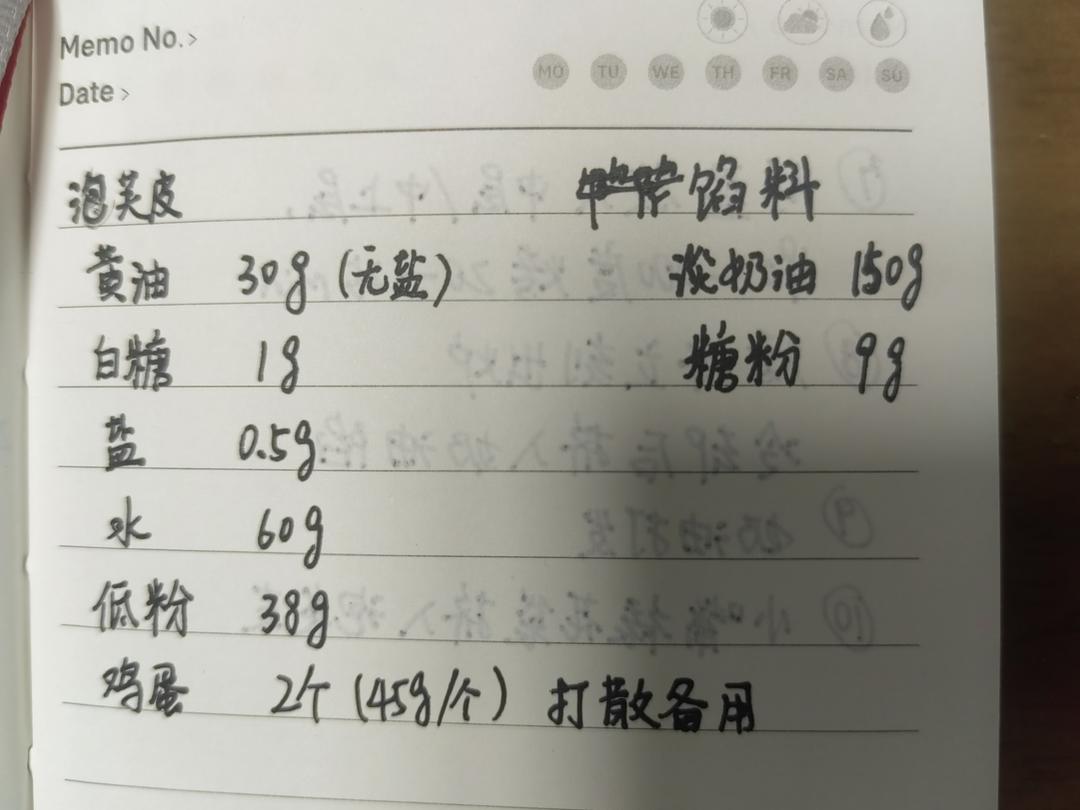 Memo No.>
MO TU WE TH FR SA SU
Date >
泡芙皮 馅料
黄油 30g (无盐) 淡奶油 150g
白糖 1g 糖粉 9g
盐 0.5g
水 60g
低粉 38g
鸡蛋 2个 (45g/个) 打散备用